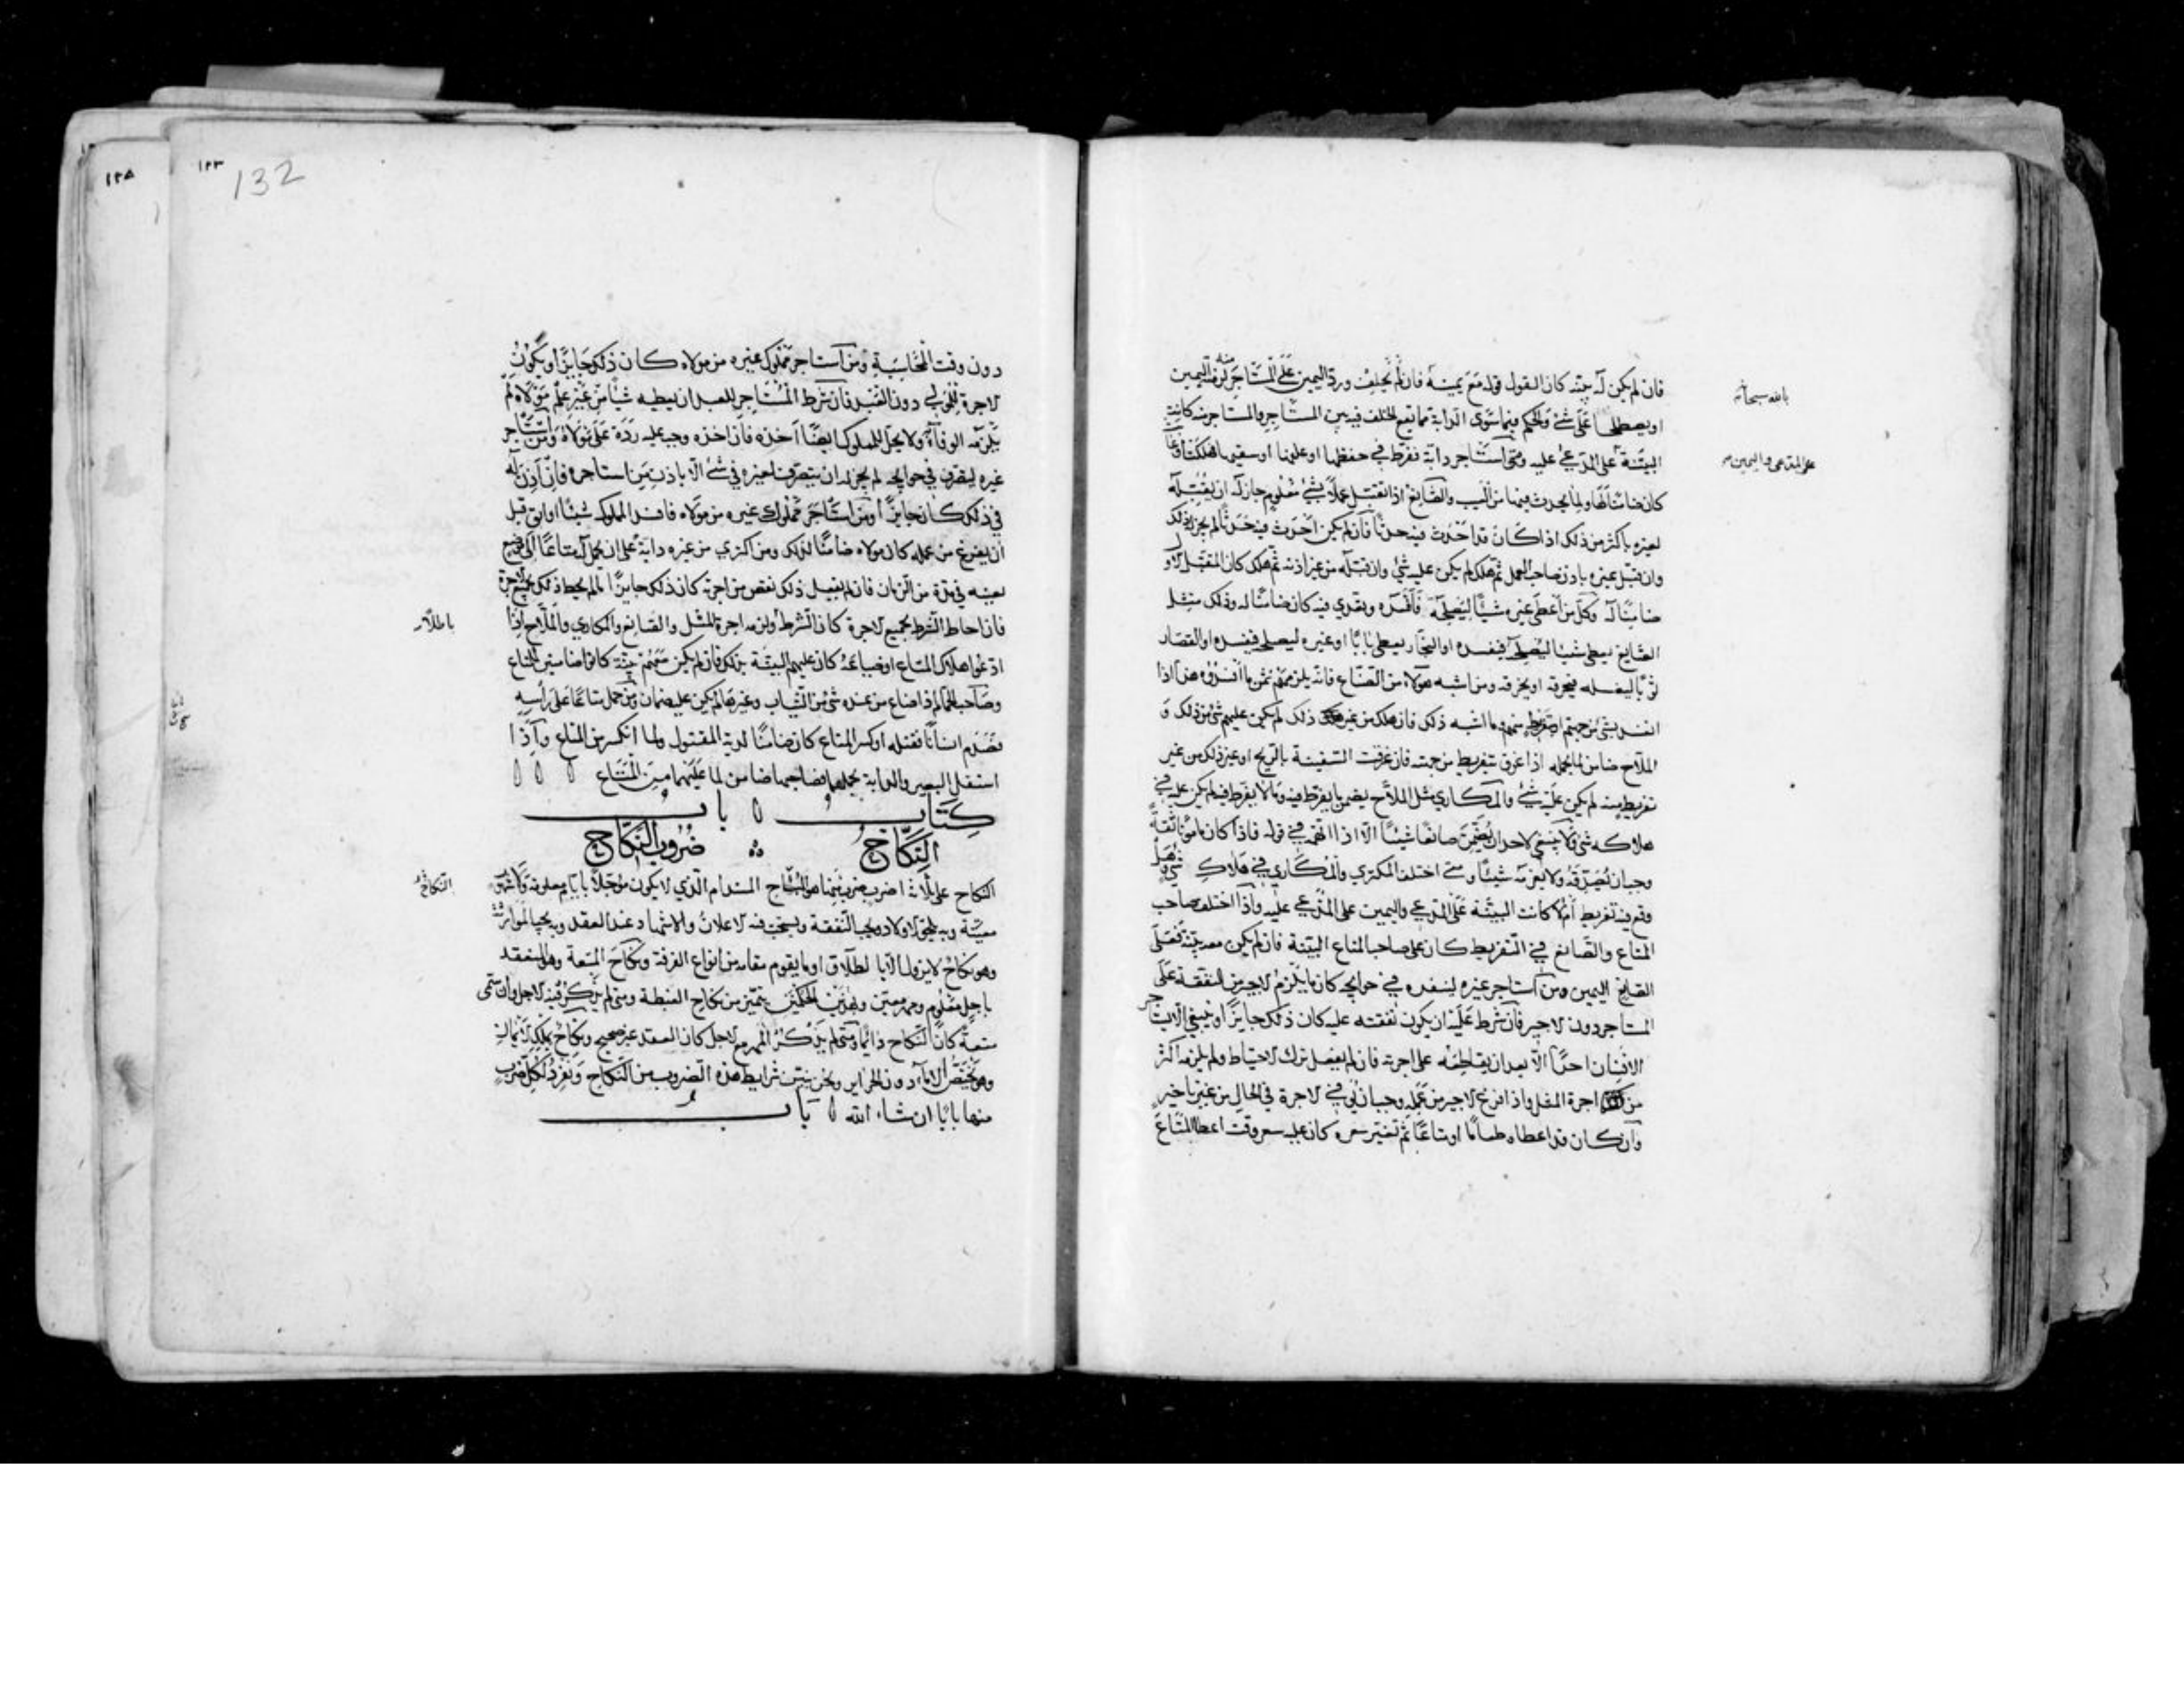 فان لم يكن له بينة كان القول قوله مع يمينه فان لم يحلف ورد اليمين على المستأجر لزمته اليمين
او يصطلحا على شيء والحكم فيما سوى الدابة مما يقع الخلف فيه بين المستاجر والمستاجر منه كانت
البينة على المدعى عليه ومتى استأجر دابة ففرط في حفظها او علفها او سقيها فهلكت
كان ضامنا لها ولما يحدث فيها من العيب والصانع اذا تقبل عملا بشيء معلوم جاز له ان يقبله
لغيره باكثر من ذلك اذا كان قد احدث فيه حدثا فان لم يكن احدث فيه حدثا لم يجز له ذلك
وان قبل غيره باذن صاحب العمل ثم هلك لم يكن عليه شيء وان قبله من غير اذنه ثم هلك كان المتقبل الاول
ضامنا له وكل من اعطى غيره شيئا ليصلحه فافسده وتعدى فيه كان ضامنا له وذلك مثل
الصايغ يعطى شيئا ليصلحه فيفسده او النجار يعطى بابا او غيره ليصلحه فيفسده او القصار
ثوبا ليغسله فيحرقه او يخرقه ومن اشبه هؤلاء من الصناع فانه يلزمهم ثمن ما افسدوه هذا اذا
افسد بشيء من جهتهم او تفريط منهم وما اشبه ذلك فان هلك من غير ذلك لم يكن عليهم شيء من ذلك و
الملاح ضامن لما يحمله اذا غرق بتفريط من جهته فان غرقت السفينة بالريح او غير ذلك من غير
تفريط منه لم يكن عليه شيء والمكاري مثل الملاح يضمن ما يفرط فيه وما لا يفرط فيه لم يكن عليه في
هلاكه شيء ولا ينبغي لاحد ان يضمن صانعا شيئا الا اذا اتهمه في قوله فاذا كان مامونا ثقة
وجب ان يصدقه ولا يغرمه شيئا ومتى اختلف المكتري والمكاري في هلاك شيء وهل
وقع فيه تفريط ام لا كانت البينة على المدعي واليمين على المدعى عليه واذا اختلف صاحب
المتاع والصانع في التفريط كان على صاحب المتاع البينة فان لم يكن معه بينة فعلى
الصانع اليمين ومن استاجر غيره لينفذه في حوايجه كان ما يلزم الاجير من النفقة على
المستاجر دون الاجير فان شرط عليه ان يكون نفقته عليه كان ذلك جايزا وينبغي الا يستاجر
الانسان احدا الا بعد ان يقاطعه على اجرته فان لم يفعل ترك الاحتياط ولم يلزمه اكثر
من اجرة المثل واذا فرغ الاجير من عمله وجب ان يوفى الاجرة في الحال من غير تاخير
وان كان قد اعطاه طعاما او متاعا ثم تغير سعره كان عليه سعر وقت اعطاء المتاع
بالله سبحانه
على المدعي واليمين
١٢٣
132
١٢٥
دون وقت المحاسبة ومن استاجر مملوك غيره من مولاه كان ذلك جايزا ويكون
الاجرة للمولى دون العبد فان شرط المستاجر للعبد ان يعطيه شيئا من غير علم مولاه لم
يلزمه الوفاء به ولا يحل للمملوك ايضا اخذه فان اخذه وجب عليه رده على مولاه ومن استاجر
غيره ليتصرف في حوايجه لم يجز له ان يتصرف لغيره في شيء الا باذن من استاجره فان اذن له
في ذلك كان جايزا ومن استاجر مملوك غيره من مولاه فافسد المملوك شيئا او ابق قبل
ان يفرغ من عمله كان مولاه ضامنا لذلك ومن اكترى من غيره دابة على ان يحمل له متاعا الى موضع
بعينه في مدة من الزمان فان لم يفعل ذلك نقص من اجرته كان ذلك جايزا ما لم يحيط ذلك بجميع الاجرة
فان احاط الشرط بجميع الاجرة كان الشرط ولزمه اجرة المثل والصانع والمكاري والملاح اذا
ادعوا هلاك المتاع او ضياعه كان عليهم البينة بذلك فان لم يكن معهم بينة كانوا ضامنين المتاع
وصاحب الحمام اذا ضاع من عنده شيء من الثياب وغيرها لم يكن عليه ضمان ومن حمل متاعا على راسه
فصدم انسانا فقتله او كسر المتاع كان ضامنا لدية المقتول ولما انكسر من المتاع واذا
استقل البعير والدابة بحملهما فصاحبهما ضامن لما عليهما من المتاع
كتاب باب
النكاح ضروب النكاح
النكاح على ثلاثة اضرب ضرب منها هو النكاح المستدام الذي لا يكون مؤجلا بايام معلومة ولا شهور
معينة وبه يلحق الاولاد ويجب النفقة ويستحب فيه الاعلان والاشهاد عند العقد وبه يجب الموارثة
وهو نكاح لا يزول الا بالطلاق او ما يقوم مقامه من انواع الفرقة ونكاح المتعة وهو المنعقد
باجل معلوم ومهر معين وبهذين الحكمين يتميز من نكاح الغبطة ومتى لم يذكر فيه الاجل وان سمى
متعة كان النكاح دائما ومتى لم يذكر المهر مع الاجل كان العقد غير صحيح ونكاح بملك الايمان
وهو يختص الاماء دون الحراير ونحن نبين شرايط هذه الضروب من النكاح ونفرد لكل ضرب
منها بابا ان شاء الله باب
باطلا
النكاح